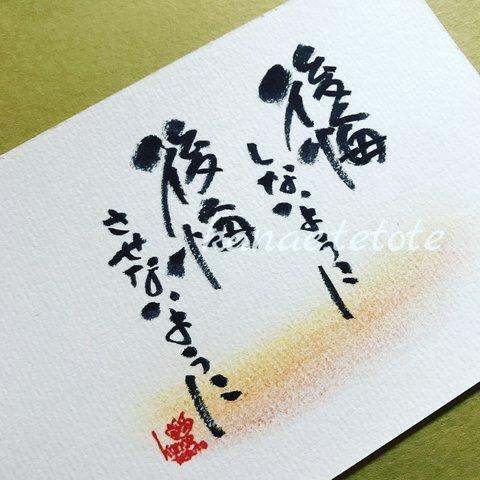 後悔
しないように
後悔
させないように
hanaetetote